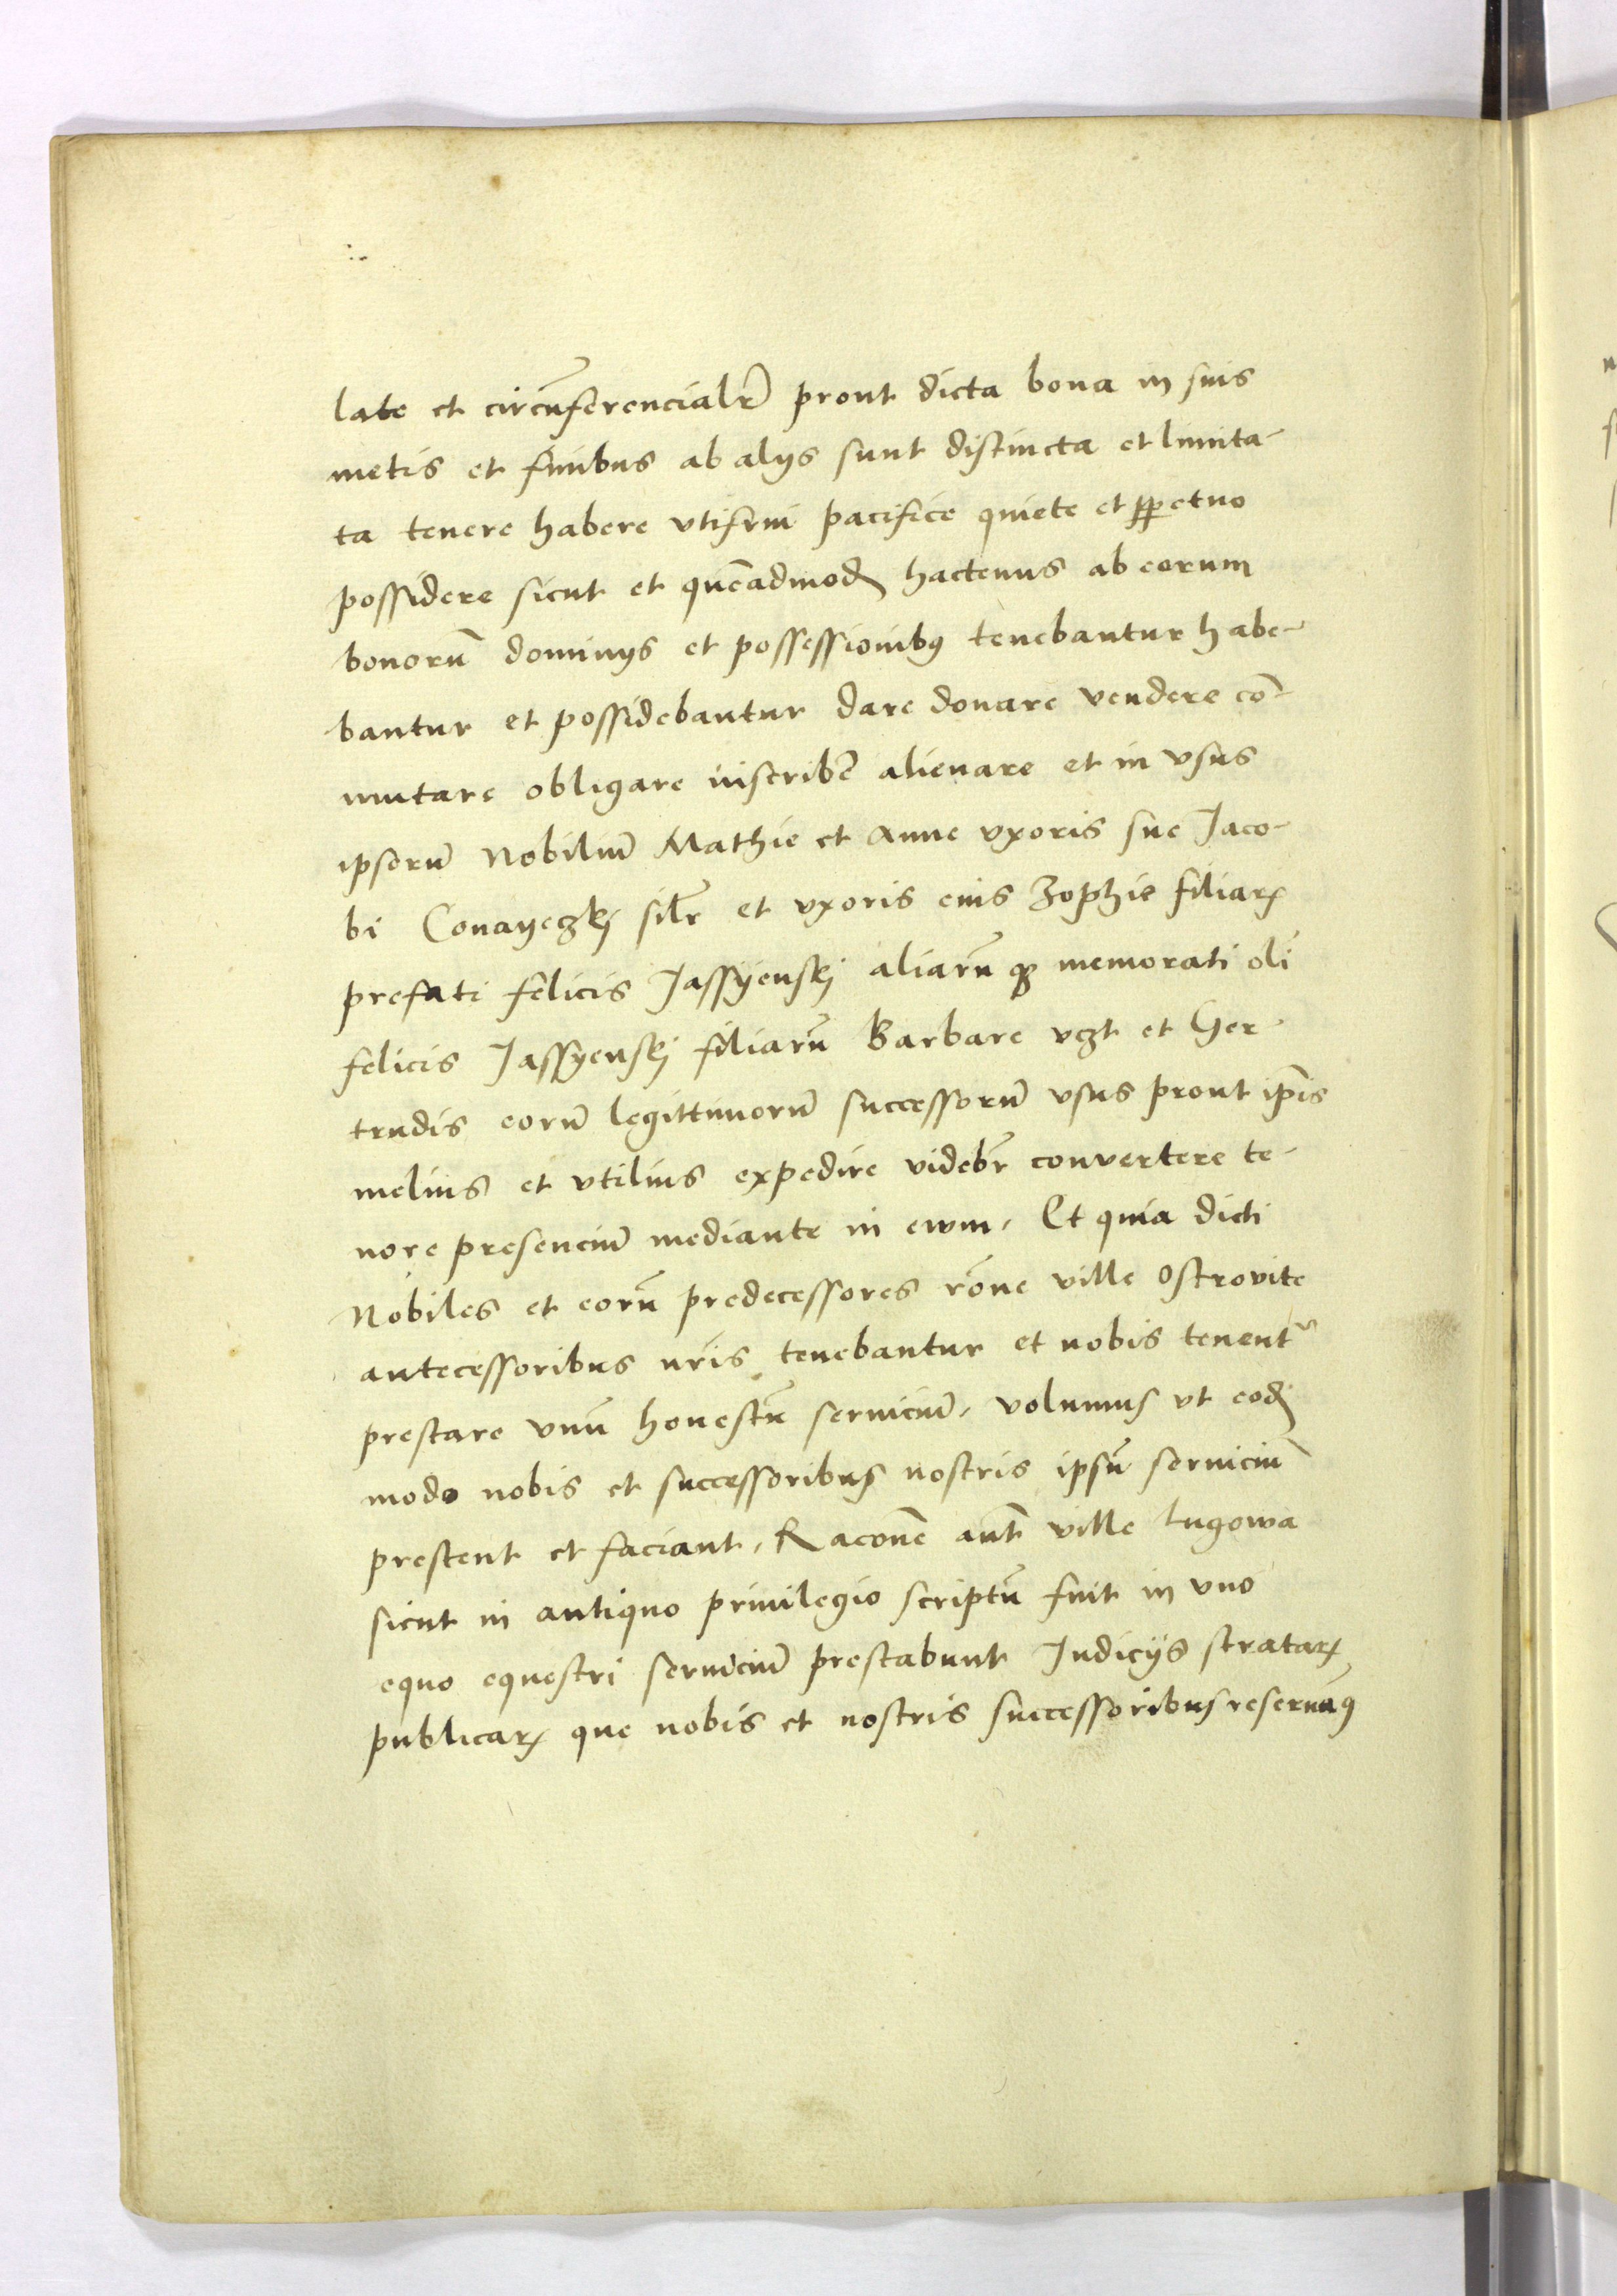 late et circūferencialr̄ prout dicta bona in suis
metis et finibus ab alijs sunt distincta et limita-
ta tenere habere vtifrui pacifice quiete et ꝑpetuo
possidere sicut et quēadmodꝫ hactenus ab eorum
bonorū dominijs et possessionibꝫ tenebantur habe-
bantur et possidebantur dare donare vendere cō-
mutare obligare inscriber̄ alienare et in vsus
ipsorū Nobiliū Mathie et Anne vxoris sue Jaco-
bi Conayeczkj silr̄ et vxoris eius Zophie filiarꝫ
prefati felicis Jassyenskj aliarū qꝫ memorati olī
felicis Jassyenskj filiarū Barbare vczt et Ger-
trudis eorū legittimorū successorū vsus prout ip̄is
melius et vtilius expedire videbr̄ convertere te-
nore presenciū mediante in ewm, Et quia dicti
Nobiles et eorū predecessores rōne ville Ostrovite
antecessoribus nr̄is tenebantur et nobis tenentr
prestare vnū honestū seruiciū, volumus vt eodꝫ
modo nobis et successoribus nostris ipsū seruiciū
prestent et faciant, Racōne aut̄ ville Lugowa
sicut in antiquo priuilegio scriptū fuit in vno
equo equestri seruiciū prestabunt Judicijs stratarꝫ
publicarꝫ que nobis et nostris successoribus reseruāꝫ